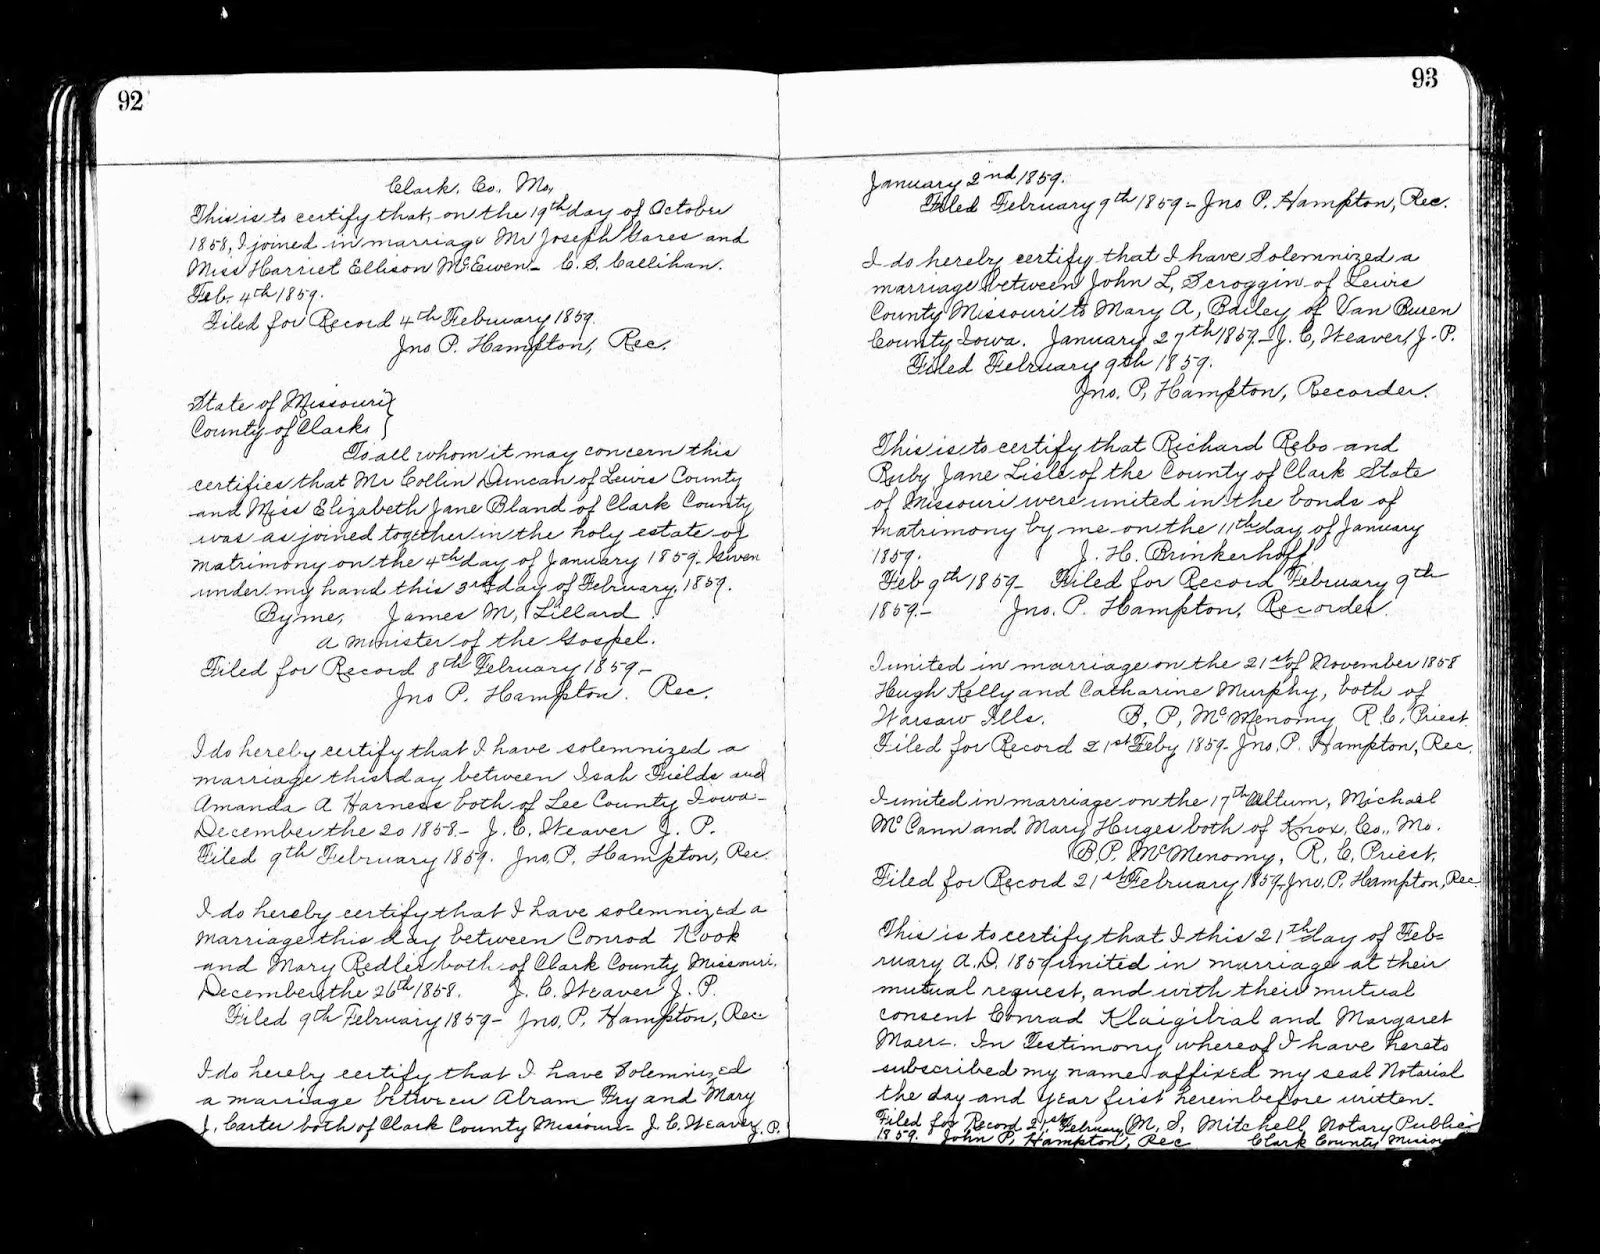 92
Clark. Co. Mo,
This is to certify that, on the 19th day of October
1858, I joined in marriage Mr Joseph Gares and
Miss Harriet Ellison McEwen- C. S. Callihan.
Feb. 4th 1859.
Filed for Record 4th February 1859.
Jno P. Hampton, Rec.
State of Missouri }
County of Clark }
To all whom it may concern this
certifies that Mr Collin Duncan of Lewis County
and Miss Elizabeth Jane Bland of Clark County
was as joined together in the holy estate of
matrimony on the 4th day of January 1859. Given
under my hand this 3rd day of February, 1859.
By me, James M, Lillard
a minister of the Gospel.
Filed for Record 8th February 1859-
Jno P. Hampton. Rec.
I do hereby certify that I have solemnized a
marriage this day between Isah Fields and
Amanda A Harness both of Lee County Iowa-
December the 20 1858.- J. C. Weaver J. P.
Filed 9th February 1859. Jno. P. Hampton, Rec.
I do hereby certify that I have solemnized a
marriage this day between Conrod Kook
and Mary Redler both of Clark County Missouri.
December, the 26th 1858. J. C. Weaver J. P.
Filed 9th February 1859- Jno. P. Hampton, Rec.
I do hereby certify that I have Solemnized
a marriage between Abram Fry and Mary
J. Carter both of Clark County Missouri- J. C. Weaver J. P.
93
January 2nd 1859.
Filed February 9th 1859- Jno P. Hampton, Rec.
I do hereby certify that I have Solemnized a
marriage between John L, Scroggin of Lewis
County Missouri to Mary A, Bailey of Van Buren
County Iowa. January 27th 1859- J. C, Weaver, J. P.
Filed February 9th 1859.
Jno. P, Hampton, Recorder.
This is to certify that Richard Rebo and
Ruby Jane Lisle of the County of Clark State
of Missouri were united in the bonds of
matrimony by me on the 11th day of January
1859. J. H. Brinkerhoff
Feb 9th 1859- Filed for Record February 9th
1859.- Jno. P. Hampton, Recorder.
I united in marriage on the 21st of November 1858
Hugh Kelly and Catharine Murphy, both of
Warsaw Ills. B, P, McMenomy R. C. Priest.
Filed for Record 21st Feby 1859- Jno. P. Hampton, Rec.
I united in marriage on the 17th Ultum, Michael
McCann and Mary Huges both of Knox, Co., Mo.
B. P. McMenomy, R. C, Priest.
Filed for Record 21st February 1859- Jno. P. Hampton, Rec.
This is to certify that I this 21th day of Feb=
ruary A. D. 1859 united in marriage at their
mutual request, and with their mutual
consent Conrad Klaigibral and Margaret
Maer-. In Testimony whereof I have hereto
subscribed my name affixed my seal Notarial
the day and year first hereinbefore written.
Filed for Record 21st February M, S, Mitchell Notary Public
1859. John P. Hampton, Rec Clark County Missou